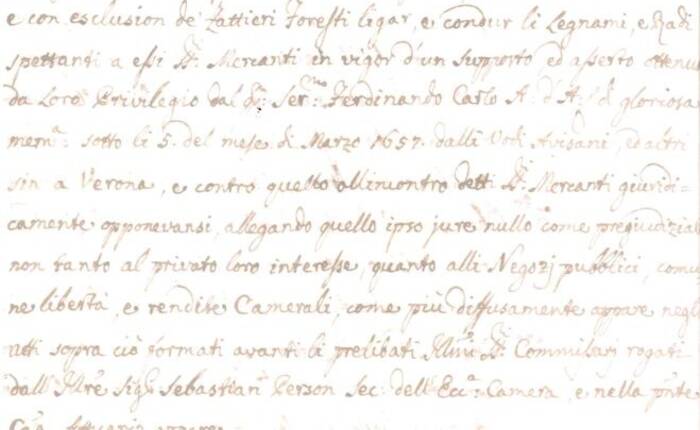 e con esclusion de Zattieri Foresti ligar, e condur li Legnami, e Radi
spettanti a essi SS.ri Mercanti in vigor d'un supposto ed asserto ottenu
da Loro Privilegio dal Ser.mo Ferdinando Carlo A. d'A. di gloriosa
mem.a sotto li 5. del mese di Marzo 1657. dalli Vodi Avisani, ed altri
sin a Verona, e contro questo all'incontro detti SS.ri Mercanti giuridi=
camente opponevansi, allegando quello ipso jure nullo come pregiudizial
non tanto al privato loro interesse, quanto alli Negozj pubblici, comu
ne libertà, e rendite Camerali, come più diffusamente appare negl
atti sopra ciò formati avanti li prelibati Commissarj rogati
dall' Sig.r Sebastian Person Sec. dell'Ecc.a Camera, e nella p̄nte